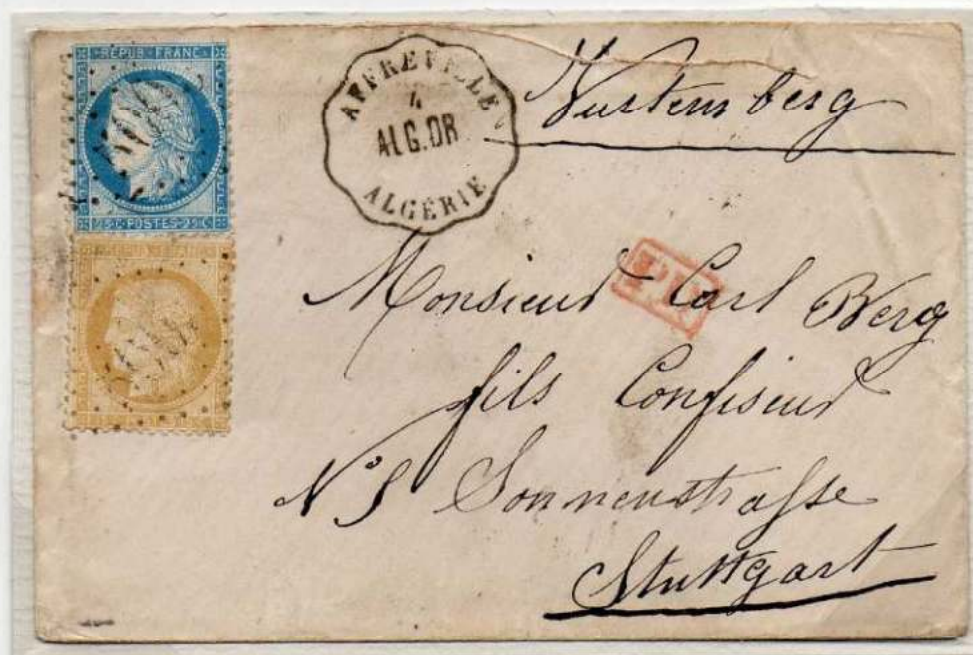 REPUB·FRANC·
25·C·POSTES·25·C
AFFREVILLE
4
ALG.OR
ALGÉRIE
Wurtemberg
P.D
Monsieur Carl Berg
fils Confiseur
Sonnenstrasse
Stuttgart